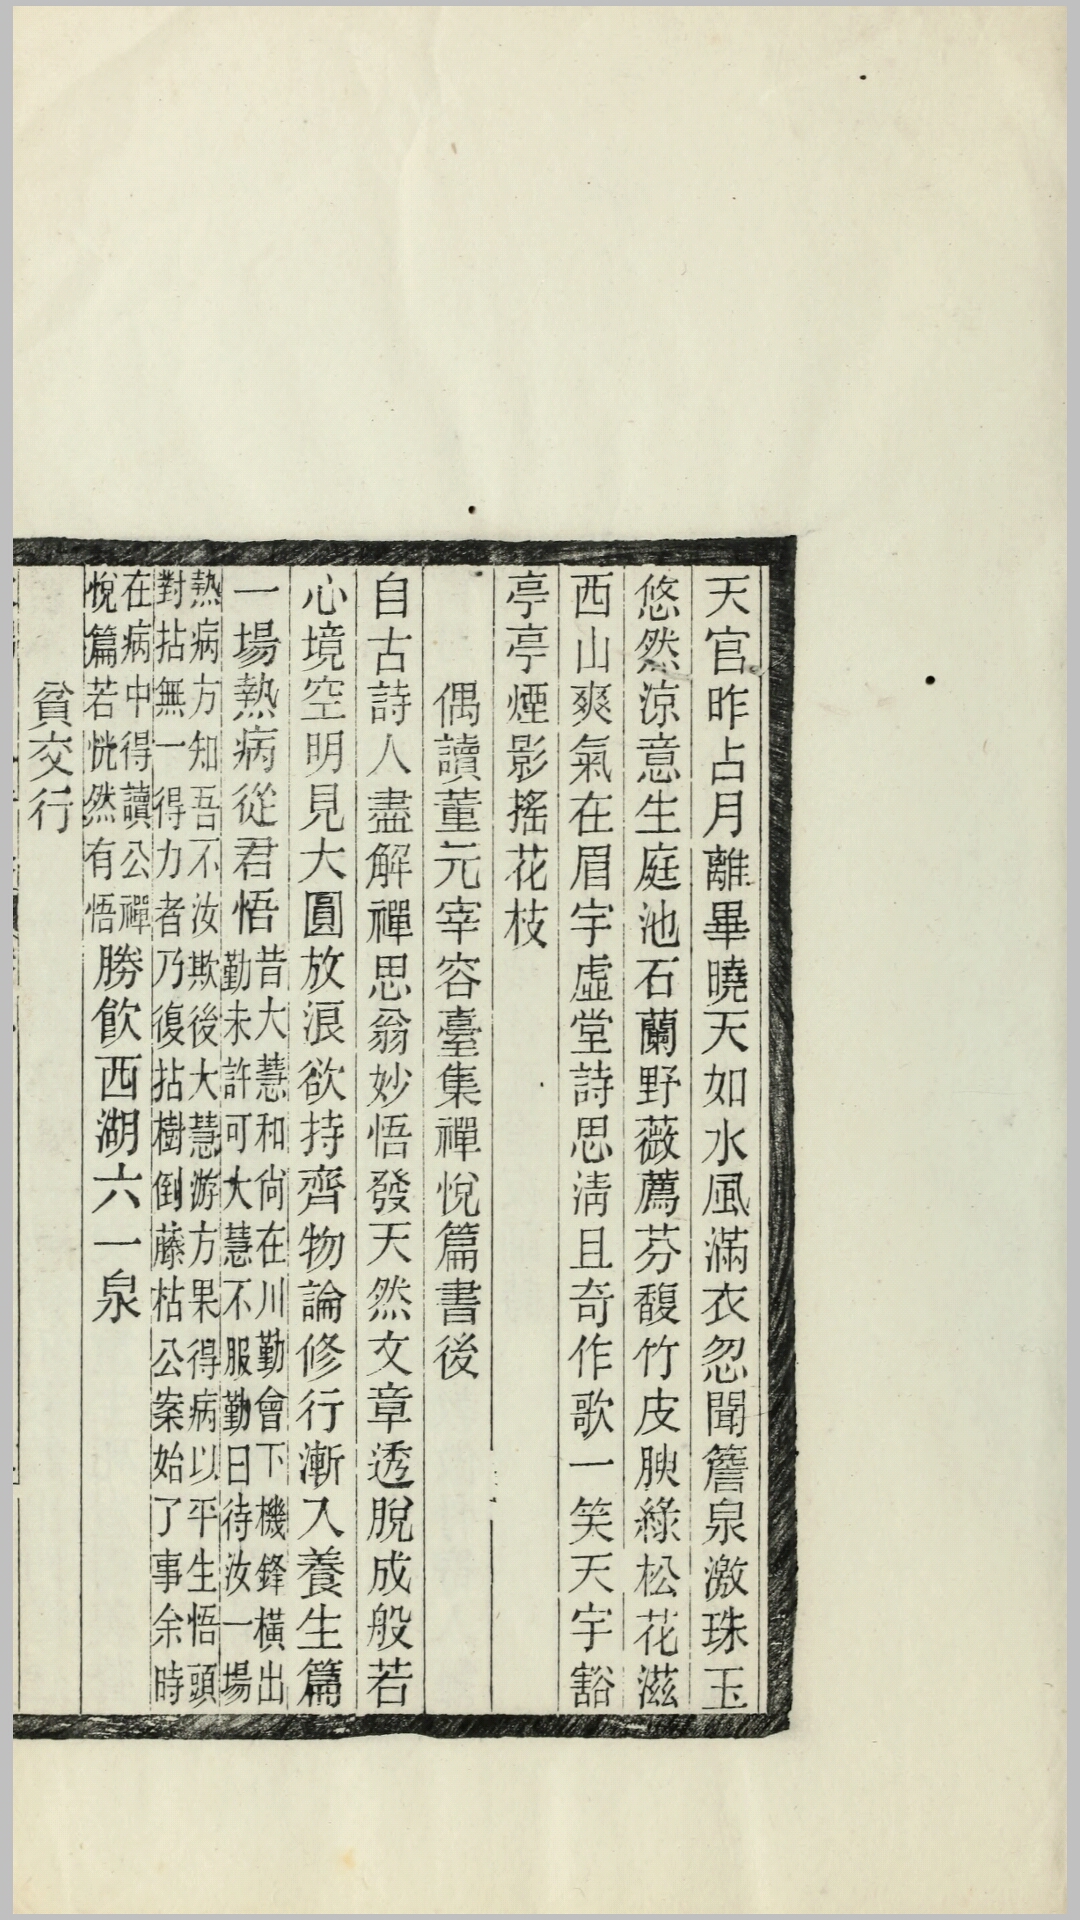 天官昨占月離畢曉天如水風滿衣忽聞簷泉激珠玉
悠然涼意生庭池石蘭野薇薦芬馥竹皮腴綠松花滋
西山爽氣在眉宇虛堂詩思淸且奇作歌一笑天宇豁
亭亭煙影搖花枝
偶讀董元宰容臺集禪悅篇書後
自古詩人盡解禪思翁妙悟發天然文章透脫成般若
心境空明見大圓放浪欲持齊物論修行漸入養生篇
一場熱病從君悟
昔大慧和尙在川勤會下機鋒橫出
勤未許可大慧不服勤日待汝一場
熱病方知吾不汝欺後大慧游方果得病以平生悟頭
對拈無一得力者乃復拈樹倒藤枯公案始了事余時
在病中得讀公禪
悅篇若恍然有悟
勝飮西湖六一泉
貧交行